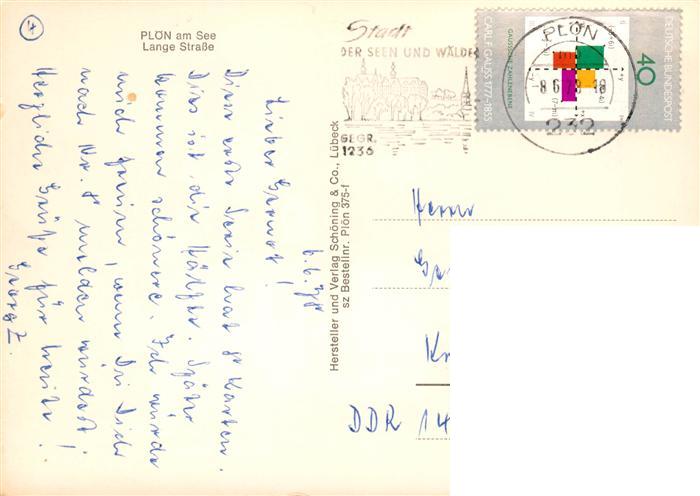 4
PLÖN am See
Lange Straße
6.6.78
Lieber Gernot!
Diese erste Serie hat 8 Karten.
Dies ist die Hälfte. Später
kommen schönere. Ich würde
mich freuen, wenn Du Dich
nach Nr. 8 melden würdest!
Herzliche Grüße für heute!
Georg Z.
Hersteller und Verlag Schöning & Co., Lübeck
sz Bestellnr. Plön 375-f
Stadt
DER SEEN UND WÄLDER
GEGR.
1236
PLÖN
8.6.78-18
232
CARL F. GAUSS 1777-1855
GAUSSSCHE ZAHLENEBENE
DEUTSCHE BUNDESPOST
40
Herrn
Ge
K
DDR 14